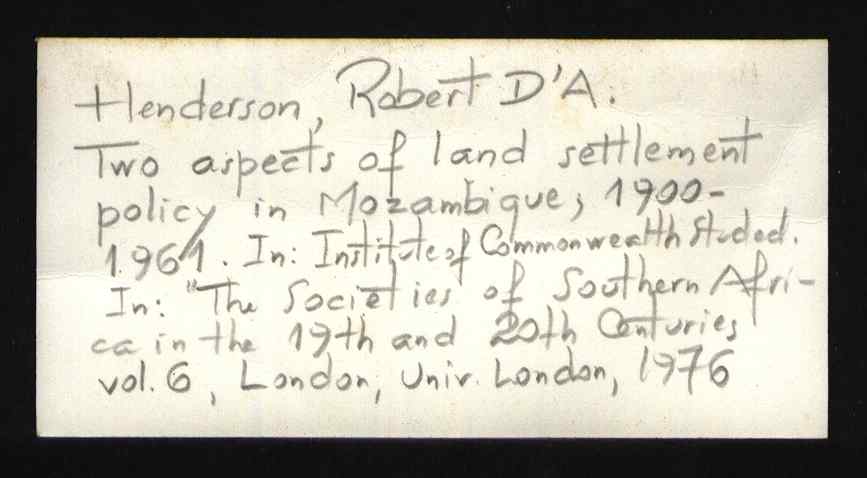 Henderson, Robert D'A.
Two aspects of land settlement
policy in Mozambique; 1900-
1961. In: Institute of Commonwealth Studed.
In: "The Societies of Southern Afri-
ca in the 19th and 20th Centuries
vol. 6, London, Univ. London, 1976